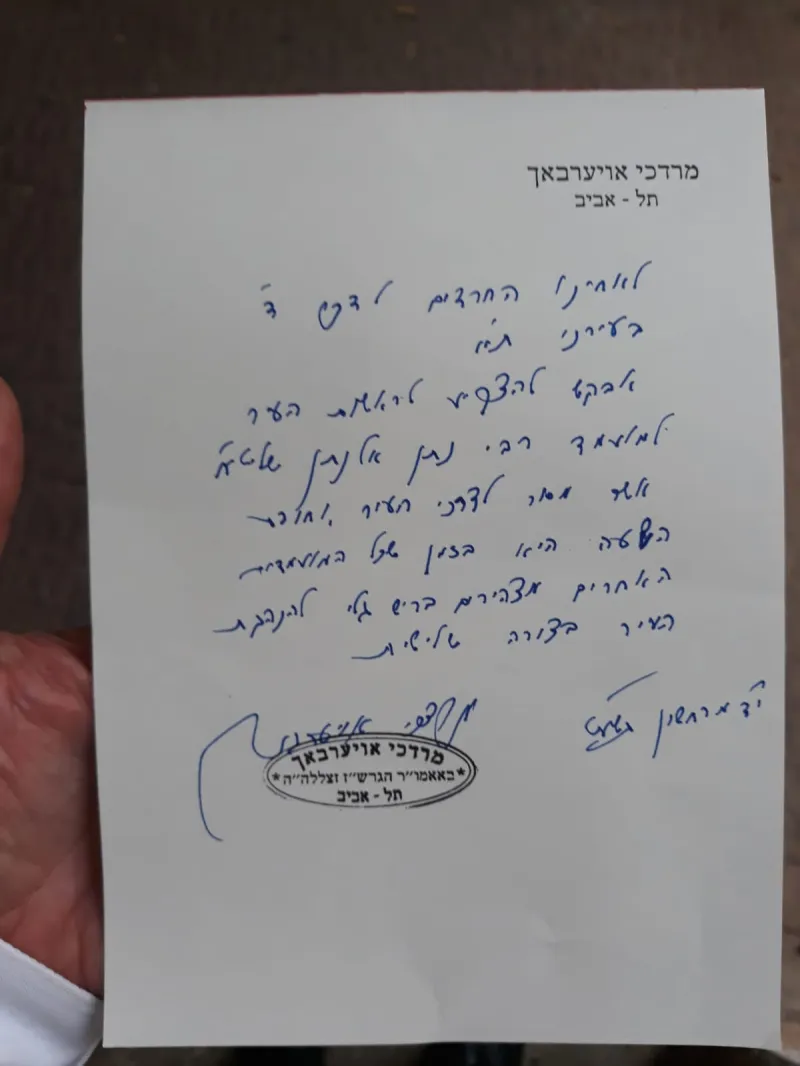 מרדכי אויערבאך
תל - אביב
לאחינו החרדים לדבר ד'
בעירנו ת"א
אבקש להצביע לראשות העיר
למועמד רבי נתן אלנתן שליט"א
אשר מסור לצרכי העיר, וחובת
השעה היא בזמן שכל המועמדים
האחרים מצהירים בריש גלי להנהגת
העיר בצורה שלישית
י"ד מרחשון תשע"ט
מרדכי אויערבאך
מרדכי אויערבאך
*באאמו״ר הגרש״ז זצללה״ה*
תל - אביב